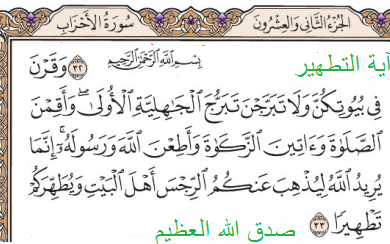 الجزء الثاني والعشرون سورة الأحزاب
آية التطهير
بِسْمِ اللَّهِ الرَّحْمَٰنِ الرَّحِيمِ ٣٢ وَقَرْنَ
فِي بُيُوتِكُنَّ وَلَا تَبَرَّجْنَ تَبَرُّجَ الْجَاهِلِيَّةِ الْأُولَىٰ ۖ وَأَقِمْنَ
الصَّلَوٰةَ وَءَاتِينَ الزَّكَوٰةَ وَأَطِعْنَ اللَّهَ وَرَسُولَهُ ۚ إِنَّمَا
يُرِيدُ اللَّهُ لِيُذْهِبَ عَنكُمُ الرِّجْسَ أَهْلَ الْبَيْتِ وَيُطَهِّرَكُمْ
تَطْهِيرًا ٣٣
صدق الله العظيم